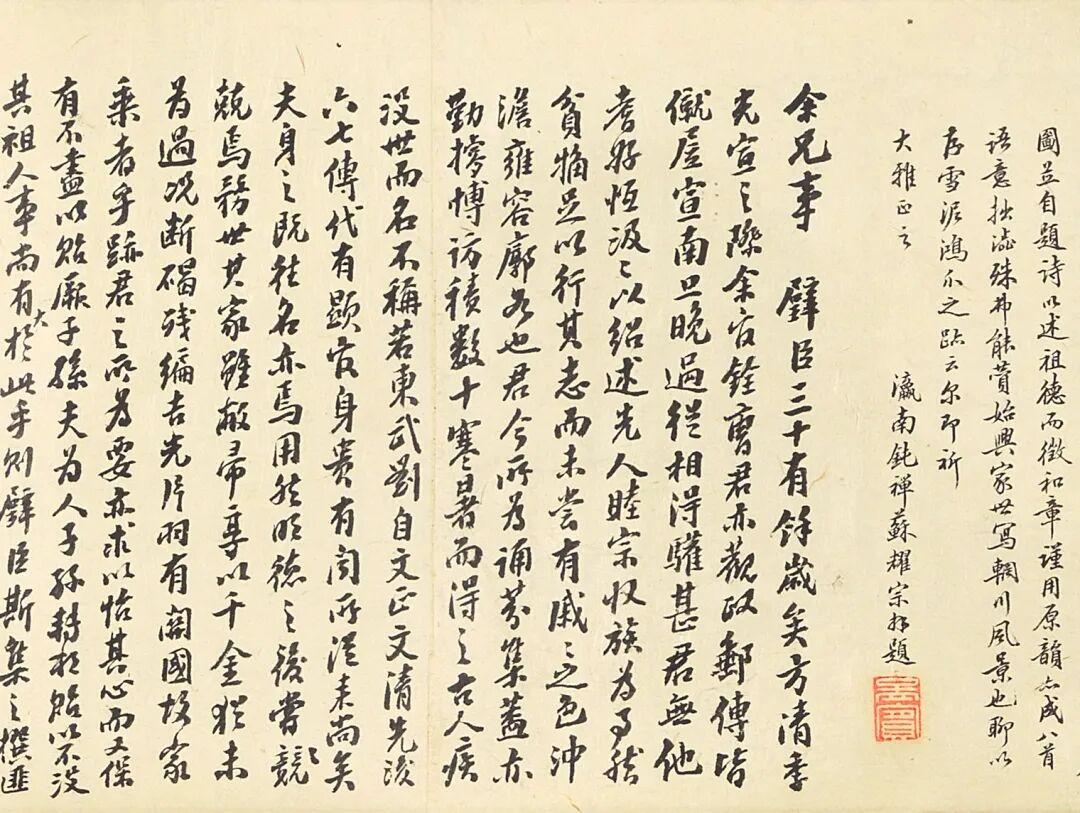 圖並自題詩以述祖德而徵和章謹用原韻亦成八首
語意拙澁殊弗能贊始興家世寫輞川風景也聊以
存雪泥鴻爪之跡云尔即祈
大雅正之
瀛南鈍禪蘇耀宗拜題
余兄事 璧臣三十有餘歲矣方清季
光宣之際余官銓曹君亦觀政郵傳皆
僦居宣南旦晚過從相得驩甚君無他
耆好恒汲汲以紹述先人睦宗收族為事然
貧約足以行其志而未嘗有戚戚之色沖
澹雍容廓如也君今所為誦芬集蓋亦
勤搜博訪積數十寒暑而得之古人疾
没世而名不稱若東武劉自文正文清先後
六七傳代有顯官身貴有聞所從来尚矣
夫身之既往名亦焉用然明德之後嘗競
競焉務世其家雖敝帚享以千金猶未
為過况断碣残编吉光片羽有關國故家
乘者乎跡君之所為要亦求以怡其心而又保
有不盡以貽厥子孫夫為人子孫轉相貽以不没
其祖人事尚有大於此乎則璧臣斯集之撰匪